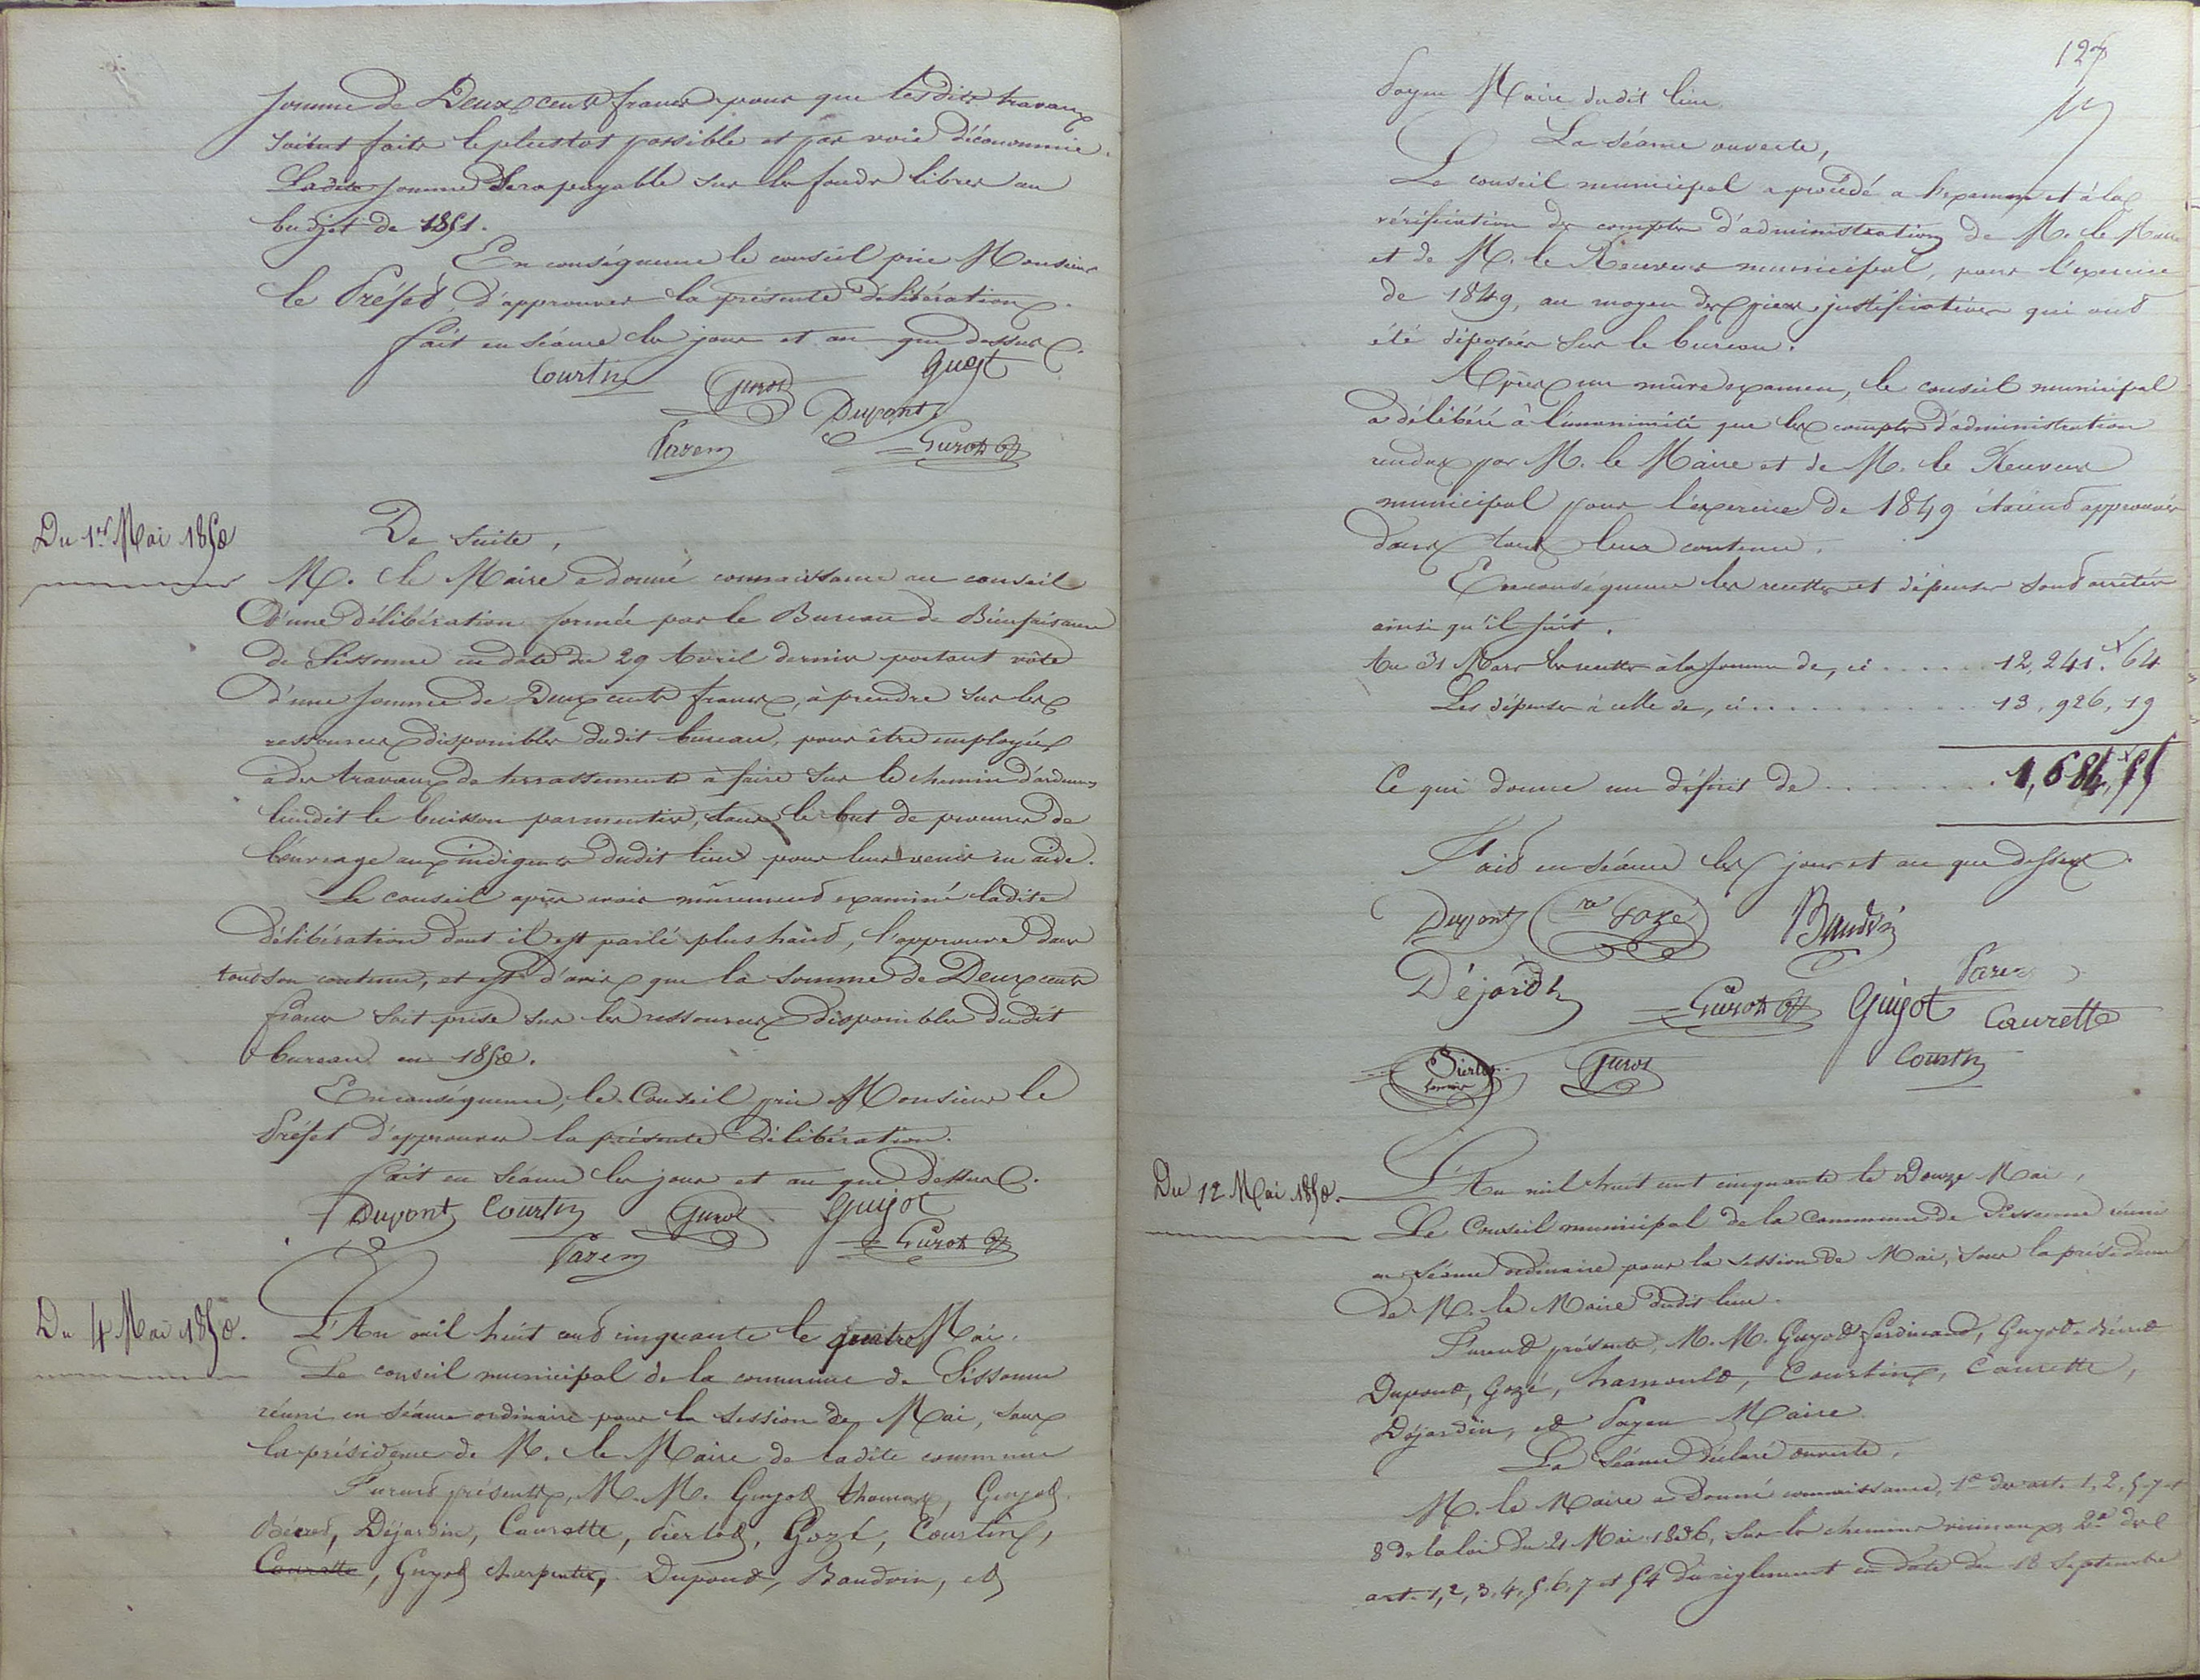 somme de Deux cents francs pour que lesdits travaux
soient faits le plustot possible et par voie d'économie.
Ladite somme sera payable sur les fonds libres au
budjet de 1851.
En conséquence le conseil prie Monsieur
le Préfet d'approuver la présente délibération.
fait en séance les jour et an que dessus.
Courtin Guyot Guyot
Dupont
Payen Guyot
Du 1er Mai 1850
De suite,
M. le Maire a donné connaissance au conseil
d'une délibération formée par le Bureau de Bienfaisance
de Sissonne en date du 29 Avril dernier portant vôte
d'une somme de Deux cents francs, à prendre sur les
ressources disponibles dudit bureau, pour être employés
à des travaux de terrassements à faire sur le chemin d'ardennes
lieudit le buisson parmentier, dans le but de procurer de
l'ouvrage aux indigents dudit lieu pour leur venir en aide.
Le conseil après avoir mûrement examiné ladite
délibération dont il est parlé plus haut, l'approuve dans
tout son contenu, et est d'avis que la somme de Deux cents
francs soit prise sur les ressources disponibles dudit
bureau en 1850.
En conséquence, le Conseil prie Monsieur le
Préfet d'approuver la présente délibération.
fait en séance les jour et an que dessus.
Dupont Courtin Guyot Guyot
Payen Guyot
Du 4 Mai 1850.
L'An mil huit cent cinquante le quatre Mai.
Le conseil municipal de la commune de Sissonne
réuni en séance ordinaire pour la session de Mai, sous
la présidence de M. le Maire de ladite commune
Furent présents, M.M. Guyot thomas, Guyot
Béenet, Déjardin, Caurette, Pierlot, Gozé, Courtin,
Caurette, Guyot charpentier, Dupont, Baudoin, et
127
Payen Maire dudit lieu
La séance ouverte,
Le conseil municipal a procédé a l'examen et à la
vérification des comptes d'administration de M. le Maire
et de M. le Receveur municipal, pour l'exercice
de 1849, au moyen des pièces justificatives qui ont
été déposées sur le bureau.
Après un mûre examen, le conseil municipal
a délibéré à l'unanimité que les comptes d'administration
rendus par M. le Maire et de M. le Receveur
municipal pour l'exercice de 1849 étaient approuvés
dans tout leur contenu.
En conséquence les recettes et dépenses sont arrêtées
ainsi qu'il suit.
Au 31 Mars les recettes à la somme de, ci ..... 12,241. 64
Les dépenses à celle de, ci ........... 13,926, 19
Ce qui donne un déficit de ........ 1,684,55
Fait en séance les jour et an que dessus.
Dupont Gozé Baudoin
Déjardin Guyot Guyot Payen
Caurette
Pierlot Guyot Courtin
Du 12 Mai 1850.
L'An mil huit cent cinquante le Douze Mai,
Le Conseil municipal de la Commune de Sissonne réuni
en séance ordinaire pour la session de Mai, sous la présidence
de M. le Maire dudit lieu.
Furent présents, M.M. Guyot ferdinand, Guyot Béenet
Dupont, Gozé, hamoult, Courtin, Caurette,
Déjardin, et Payen Maire
La Séance déclaré ouverte,
M. le Maire a donné connaissance, 1° des art. 1, 2, 5, 7 et
8 de la loi du 21 Mai 1836, sur les chemins vicinaux, 2° des
art. 1, 2, 3, 4, 5, 6, 7 et 54 du réglement en date du 18 Septembre